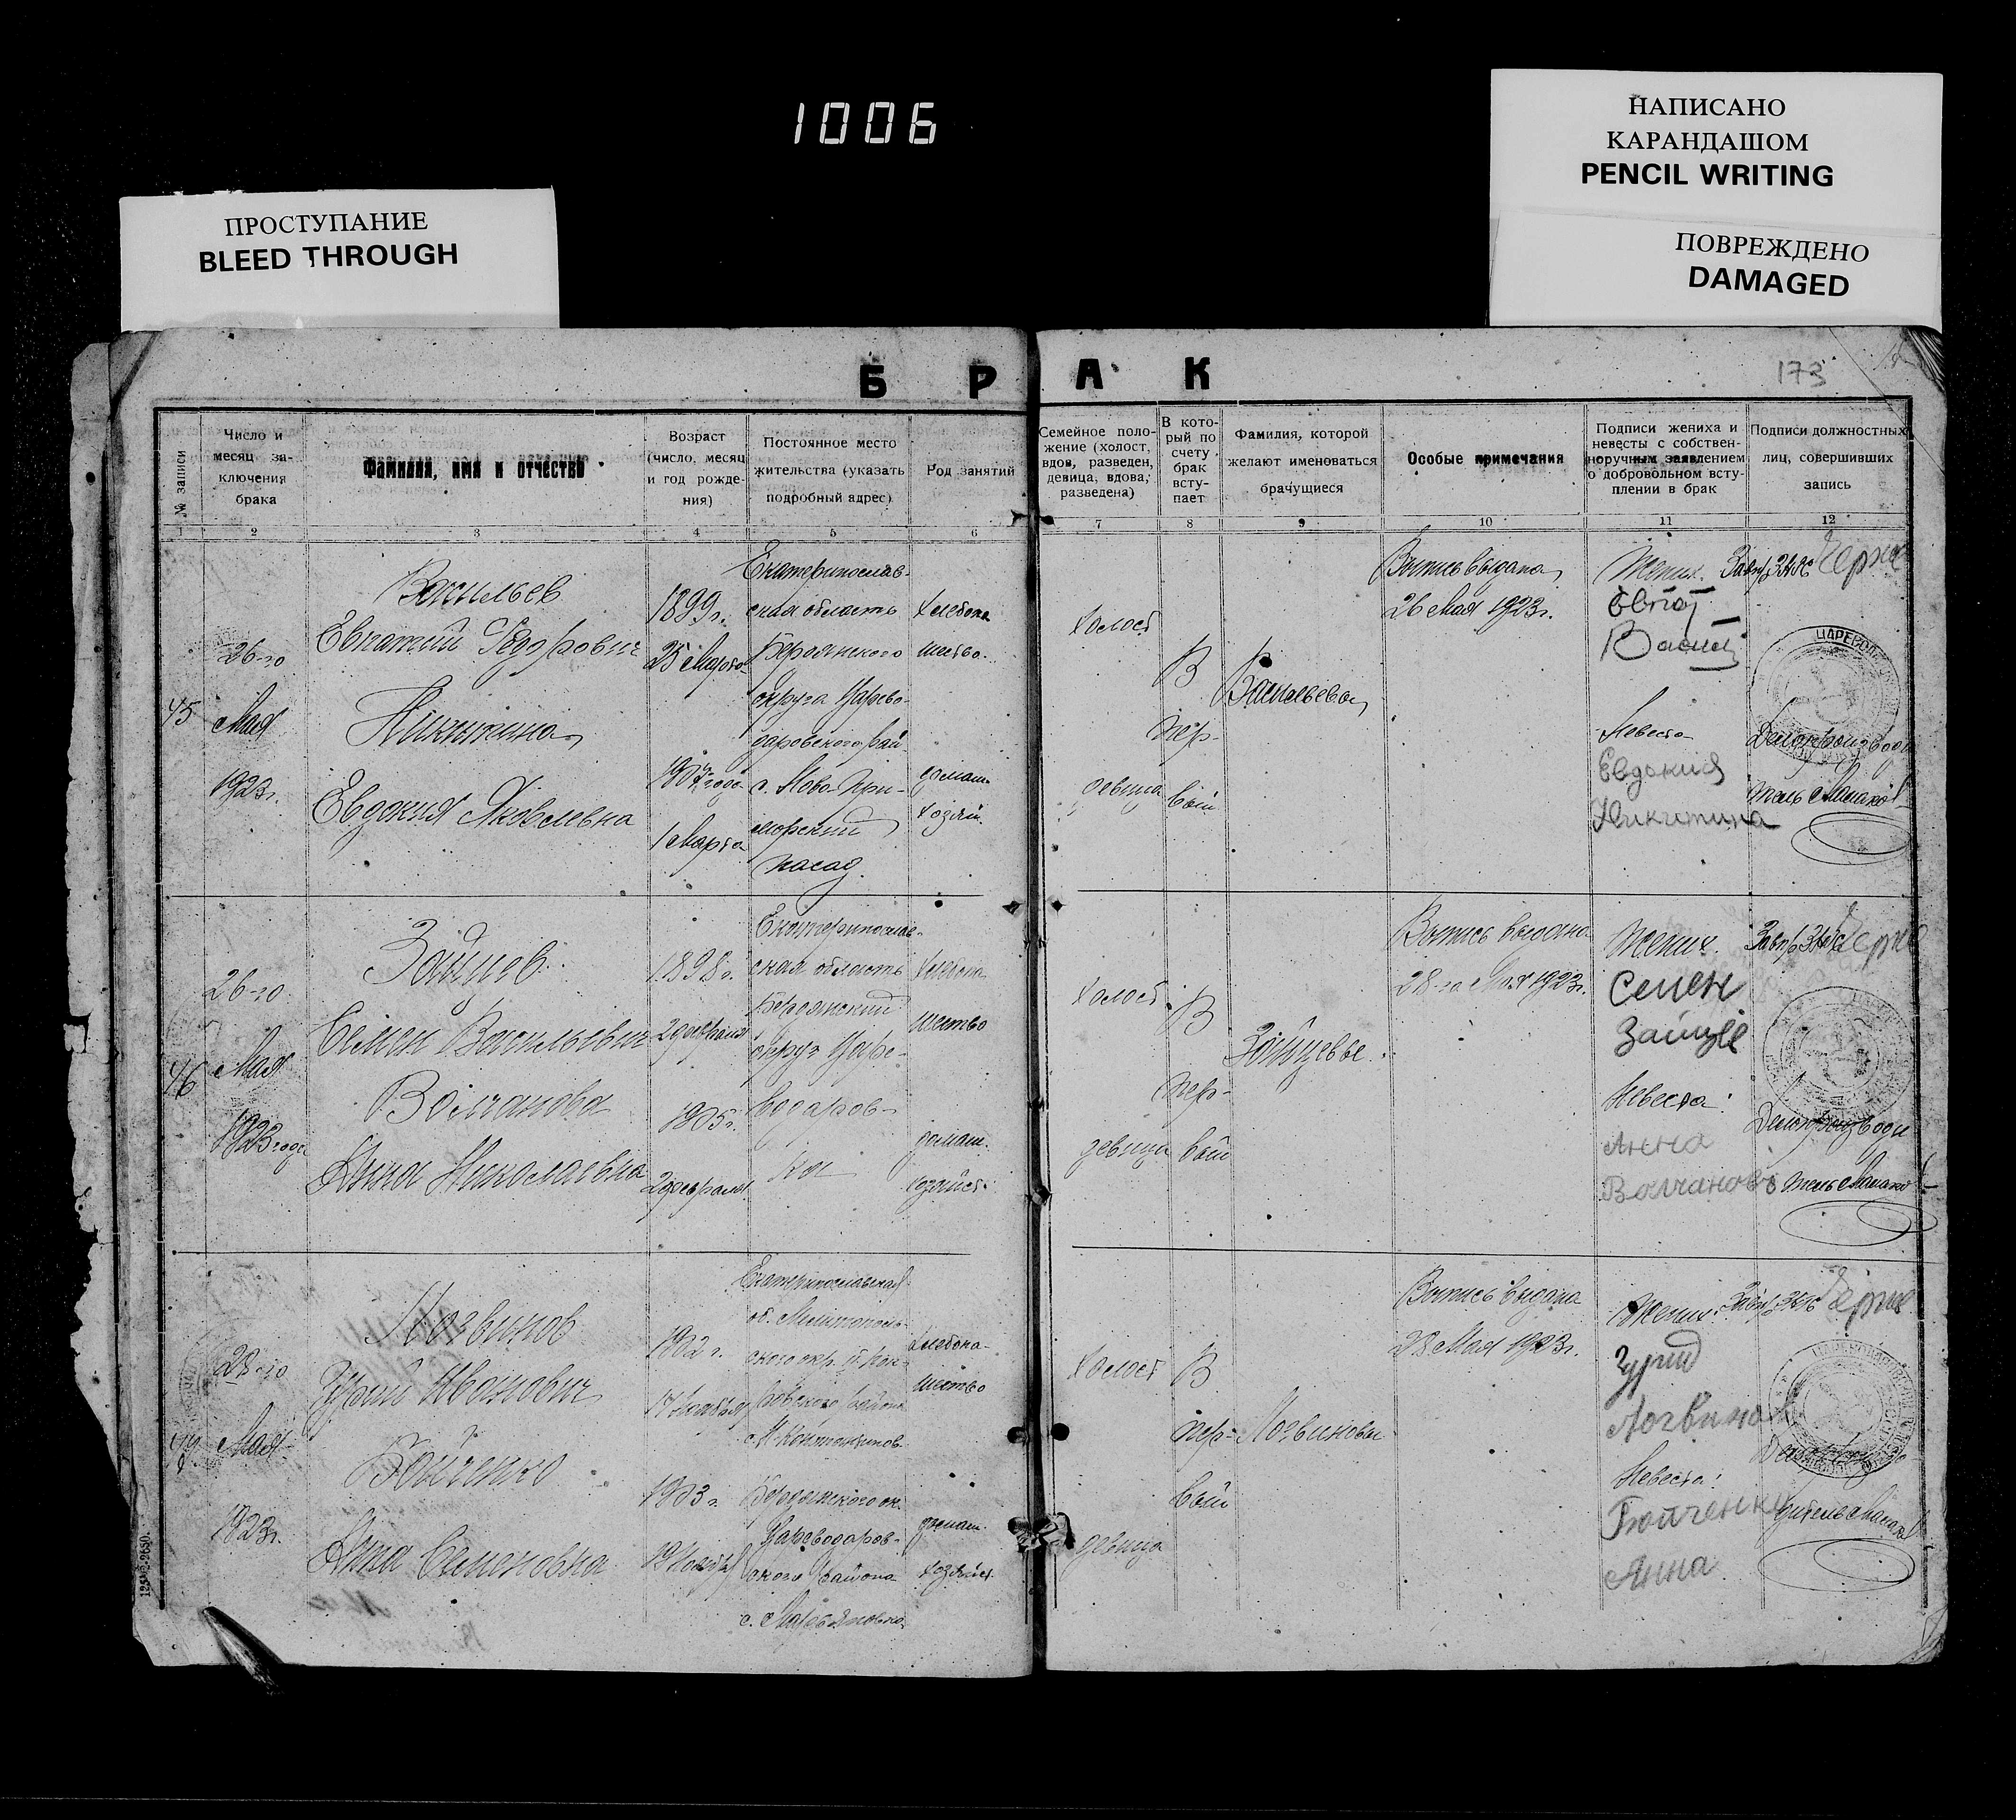 1006
НАПИСАНО
КАРАНДАШОМ
PENCIL WRITING
ПРОСТУПАНИЕ
BLEED THROUGH
ПОВРЕЖДЕНО
DAMAGED
БРАК
173
№ записи
Число и
месяц за-
ключения
брака
Фамилия, имя и отчество
Возраст
(число, месяц
и год рожде-
ния)
Постоянное место
жительства (указать
подробный адрес)
Род занятий
Семейное поло-
жение (холост,
вдов, разведен,
девица, вдова,
разведена)
В кото-
рый по
счету
брак
всту-
пает
Фамилия, которой
желают именоваться
брачущиеся
Особые примечания
Подписи жениха и
невесты с собствен-
норучным заявлением
о добровольном всту-
плении в брак
Подписи должностных
лиц, совершивших
запись
1 2 3 4 5 6 7 8 9 10 11 12
45
26-го
Мая
1923г.
Васильев
Евпатий Федорович
Никитина
Евдокия Яковлевна
1899г.
25 Марта
1 Марта
Екатеринослав-
ская область
Бердянского
округа Царево-
даровского рай
с. Ново-При-
морский
посад.
Хлебопа
шество.
домаш.
хозяй.
Холост
девица
В
пер-
вый
Васильевы
Выпись выдана
26 Мая 1923г.
Жених.
Невеста
Евдокия
Никитина
Делопроизводи
тель
46
26-го
Мая
1923 года
Зайцев
Семен Васильевич
Волчанова
Анна Николаевна
1898г.
2 февраля
1905г.
2 февраля
Екатеринослав-
ская область
Бердянский
округ Царе-
водаров-
ка
Хлебопа
шество
домаш.
хозяйст.
Холост
девица
В
пер-
вый
Зайцевы.
Выпись выдана
28-го Мая 1923г.
Жених.
Семен
Зайцев
Невеста:
Анна
Волчанова
Делопроизводи
тель
47
28-го
Мая
1923г.
Логвинов
Гурий Иванович
Бойченко
Анна Семеновна
1902 г.
1903 г.
Екатеринославская
об. Мелитополь-
ского окр.
района
Бердянского ок.
Цареводаров-
ского района
с. Марьяновка
Хлебопа-
шество
домаш.
хозяйст.
Холост
девица
В
пер-
вый
Логвиновы
Выпись выдана
28 Мая 1923г.
Жених:
Логвинов
Невеста:
Бойченко
Анна